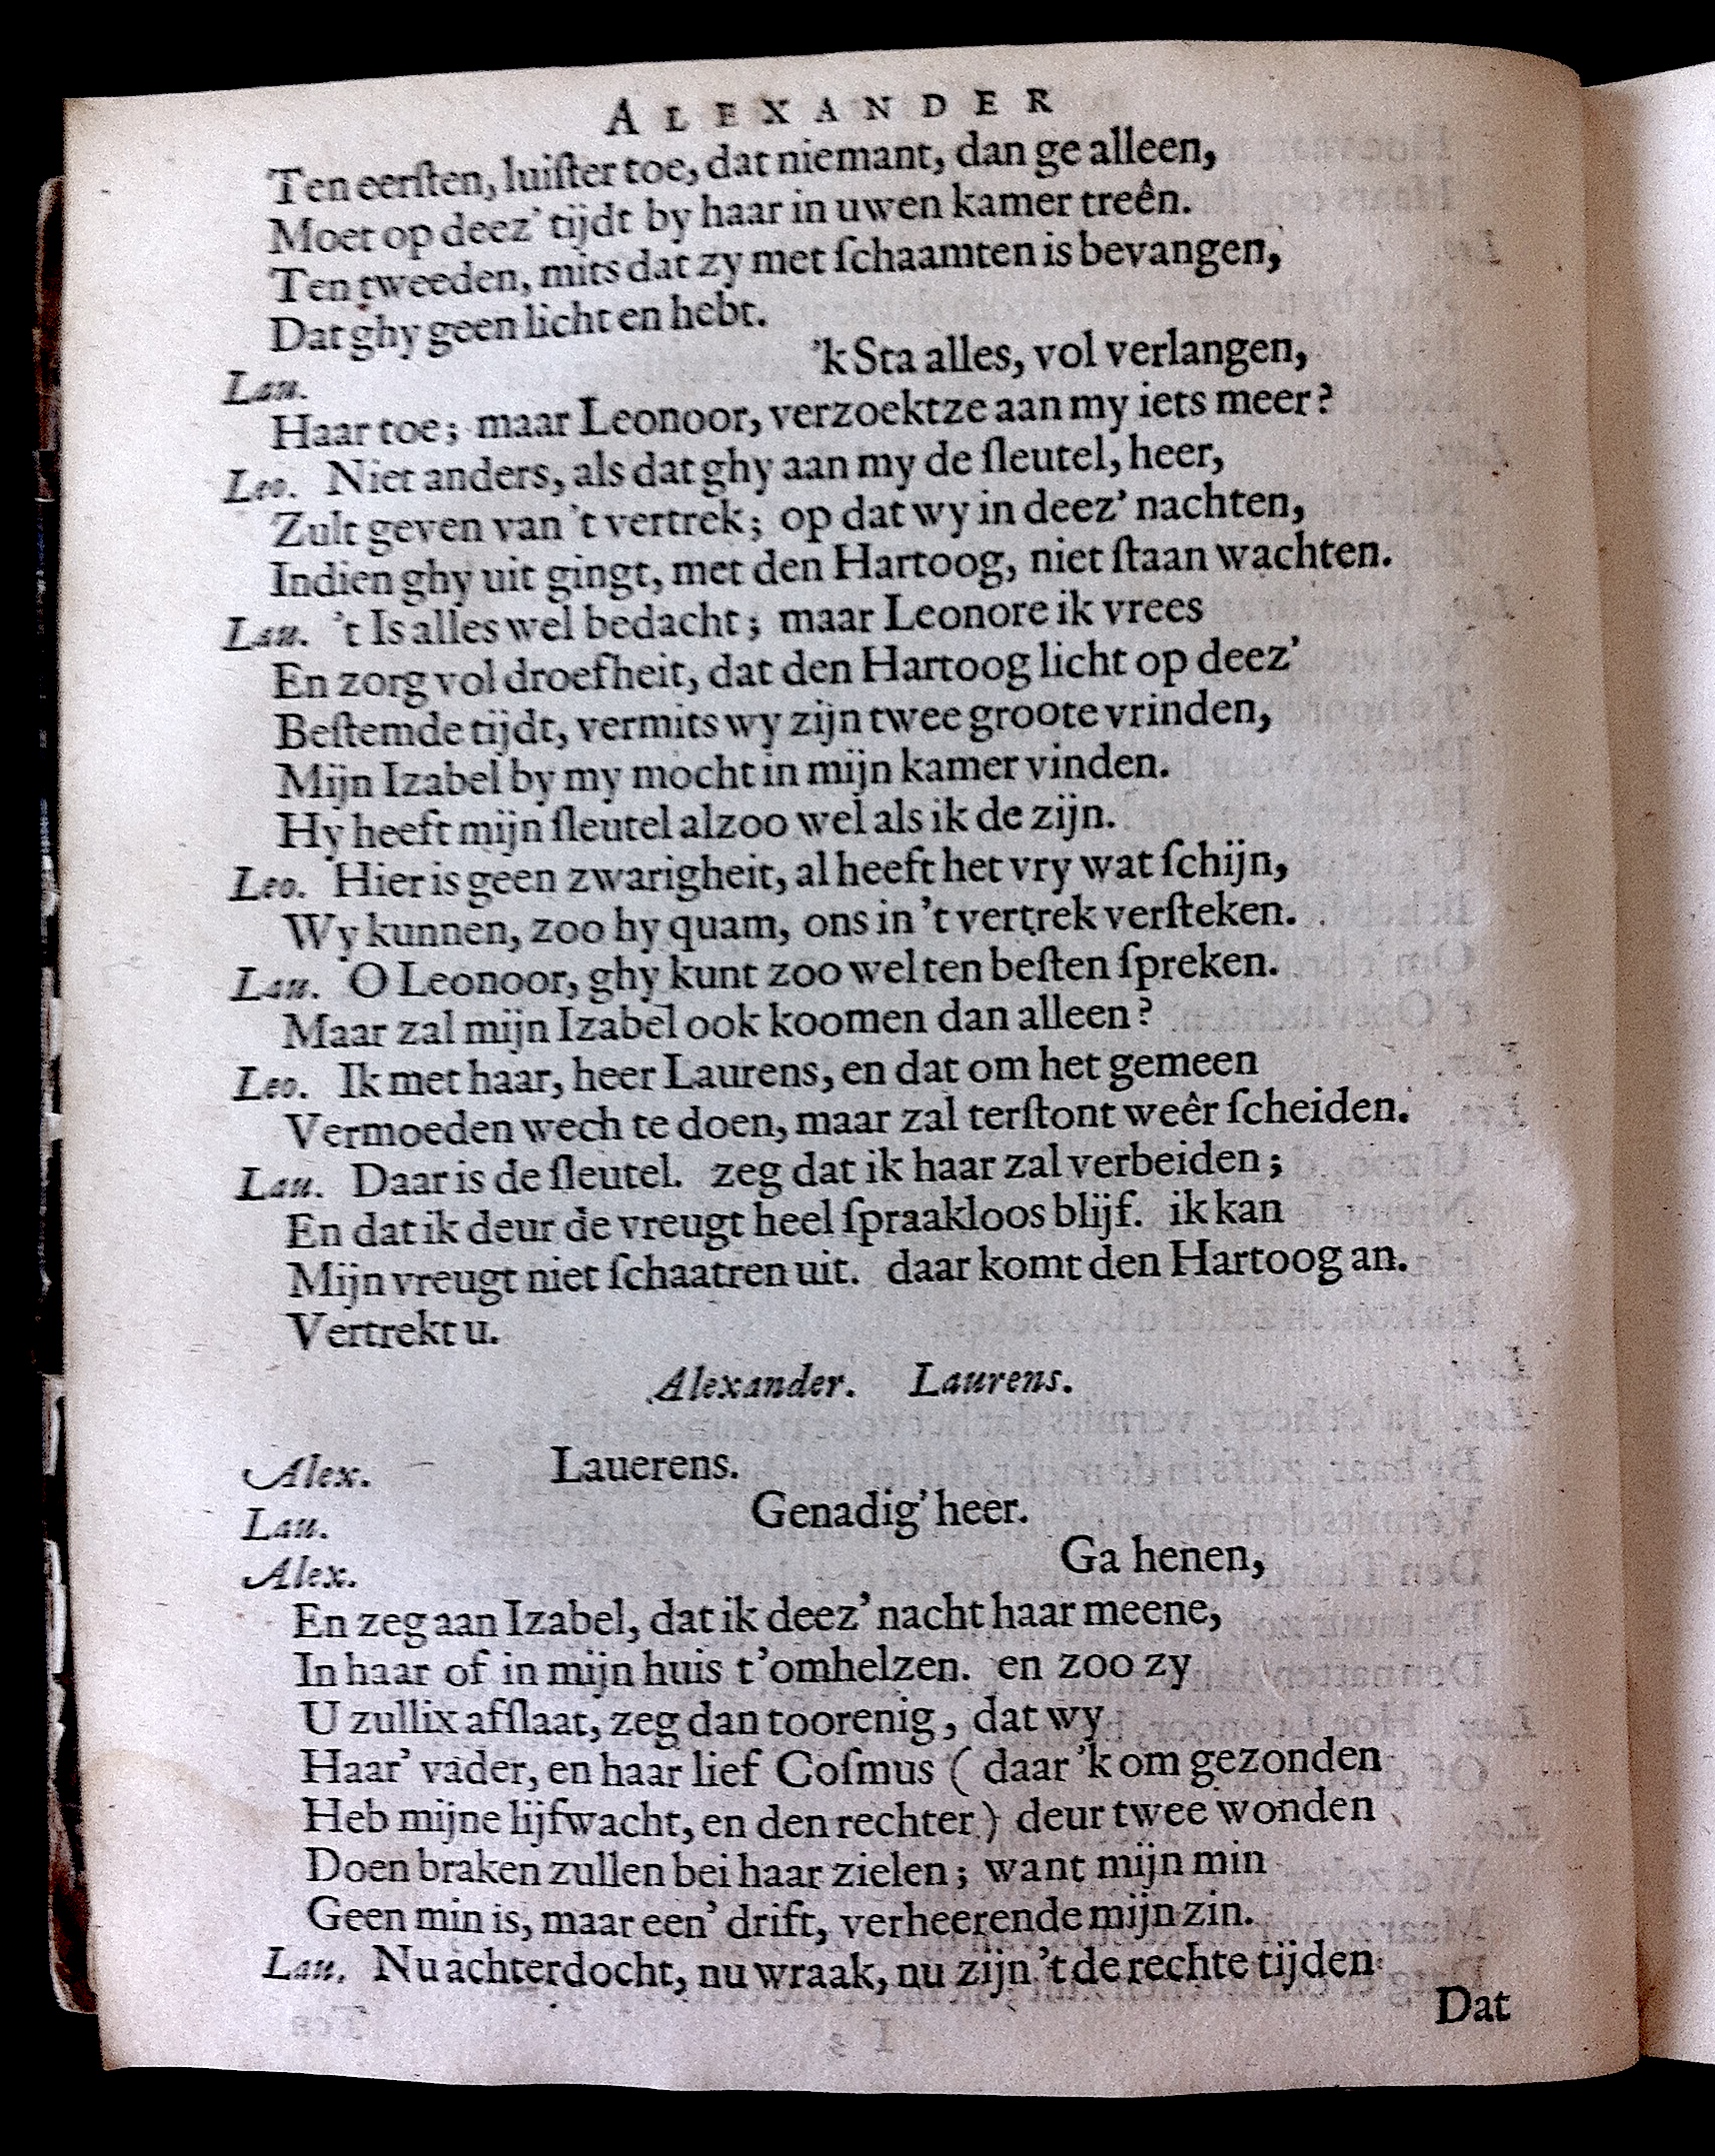 ALEXANDER
Ten eerſten, luiſter toe, dat niemant, dan ge alleen,
Moet op deez' tijdt by haar in uwen kamer treên.
Ten tweeden, mits dat zy met ſchaamten is bevangen,
Dat ghy geen licht en hebt.
Lau. 'k Sta alles, vol verlangen,
Haar toe; maar Leonoor, verzoektze aan my iets meer?
Leo. Niet anders, als dat ghy aan my de ſleutel, heer,
Zult geven van 't vertrek; op dat wy in deez' nachten,
Indien ghy uit gingt, met den Hartoog, niet ſtaan wachten.
Lau. 't Is alles wel bedacht; maar Leonore ik vrees
En zorg vol droefheit, dat den Hartoog licht op deez'
Beſtemde tijdt, vermits wy zijn twee groote vrinden,
Mijn Izabel by my mocht in mijn kamer vinden.
Hy heeft mijn ſleutel alzoo wel als ik de zijn.
Leo. Hier is geen zwarigheit, al heeft het vry wat ſchijn,
Wy kunnen, zoo hy quam, ons in 't vertrek verſteken.
Lau. O Leonoor, ghy kunt zoo wel ten beſten ſpreken.
Maar zal mijn Izabel ook koomen dan alleen?
Leo. Ik met haar, heer Laurens, en dat om het gemeen
Vermoeden wech te doen, maar zal terſtont weêr ſcheiden.
Lau. Daar is de ſleutel. zeg dat ik haar zal verbeiden;
En dat ik deur de vreugt heel ſpraakloos blijf. ik kan
Mijn vreugt niet ſchaatren uit. daar komt den Hartoog an.
Vertrekt u.
Alexander. Laurens.
Alex. Lauerens.
Lau. Genadig' heer.
Alex. Ga henen,
En zeg aan Izabel, dat ik deez' nacht haar meene,
In haar of in mijn huis t'omhelzen. en zoo zy
U zullix afſlaat, zeg dan toorenig, dat wy
Haar' vader, en haar lief Coſmus (daar 'k om gezonden
Heb mijne lijfwacht, en den rechter) deur twee wonden
Doen braken zullen bei haar zielen; want mijn min
Geen min is, maar een' drift, verheerende mijn zin.
Lau. Nu achterdocht, nu wraak, nu zijn 't de rechte tijden
Dat